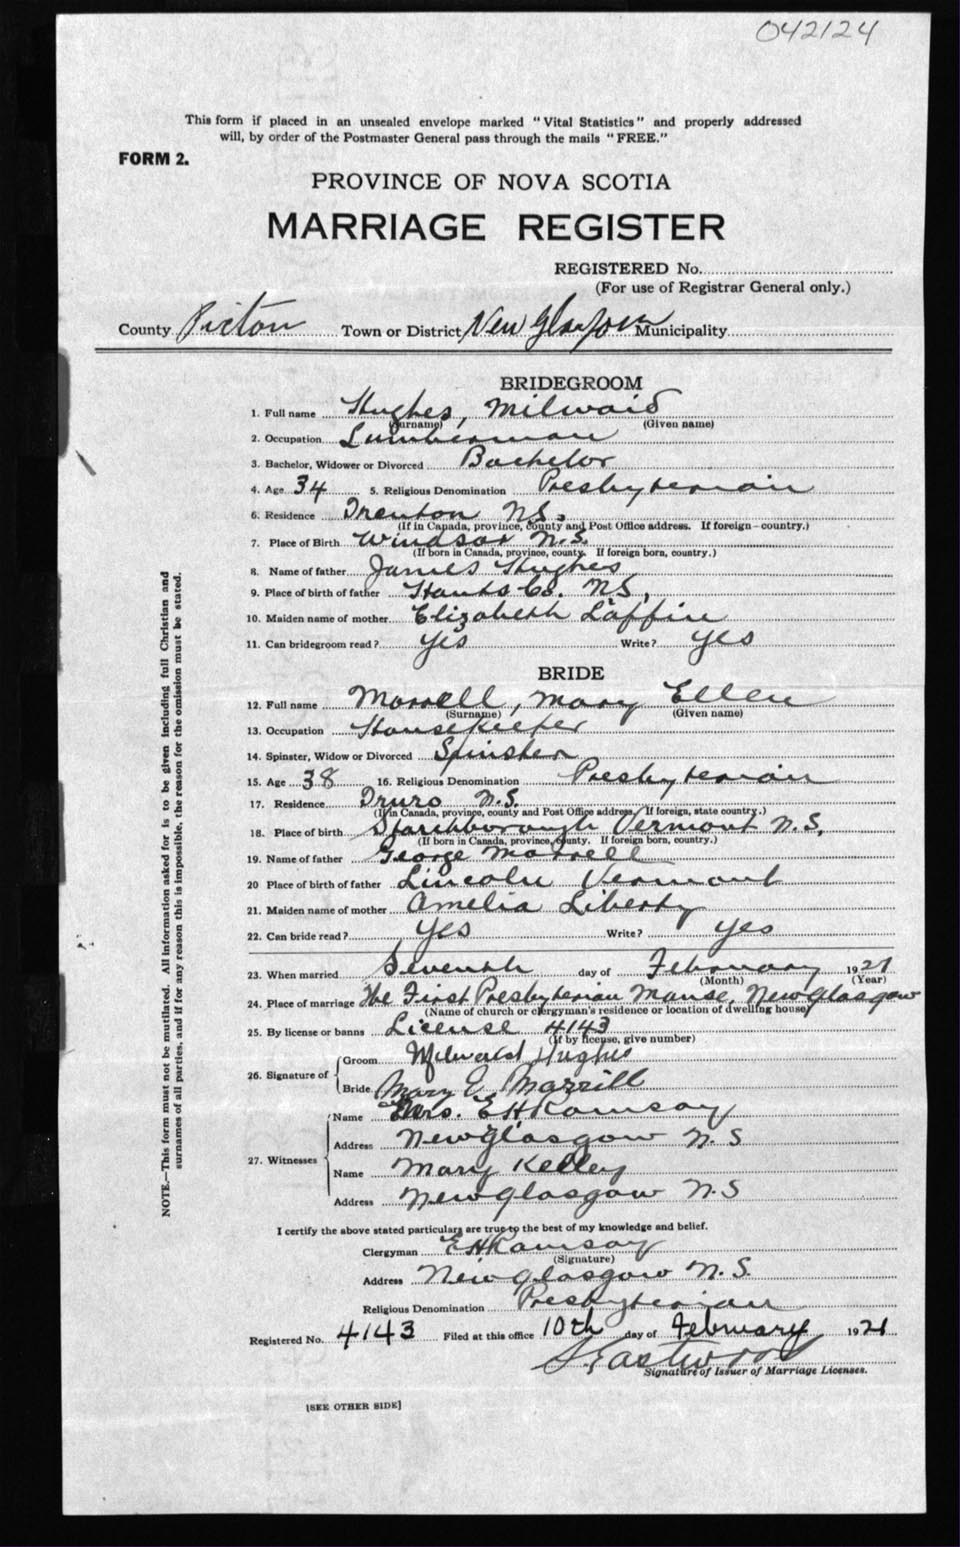 042124
This form if placed in an unsealed envelope marked "Vital Statistics" and properly addressed
will, by order of the Postmaster General pass through the mails "FREE."
FORM 2.
PROVINCE OF NOVA SCOTIA
MARRIAGE REGISTER
REGISTERED No.
(For use of Registrar General only.)
County Pictou Town or District New Glasgow Municipality
BRIDEGROOM
1. Full name Hughes, Milward
(Surname) (Given name)
2. Occupation Lumberman
3. Bachelor, Widower or Divorced Bachelor
4. Age 34 5. Religious Denomination Presbyterian
6. Residence Trenton N.S.
(If in Canada, province, county and Post Office address. If foreign—country.)
7. Place of Birth Windsor N.S.
(If born in Canada, province, county. If foreign born, country.)
8. Name of father James Hughes
9. Place of birth of father Hants Co. N.S.
10. Maiden name of mother Elizabeth Laffin
11. Can bridegroom read? Yes Write? Yes
BRIDE
12. Full name Morrell, Mary Ellen
(Surname) (Given name)
13. Occupation Housekeeper
14. Spinster, Widow or Divorced Spinster
15. Age 38 16. Religious Denomination Presbyterian
17. Residence Truro N.S.
(If in Canada, province, county and Post Office address. If foreign, state country.)
18. Place of birth Starkborough Vermont N.S.
(If born in Canada, province, county. If foreign born, country.)
19. Name of father George Morrell
20 Place of birth of father Lincoln Vermont
21. Maiden name of mother Amelia Liberty
22. Can bride read? Yes Write? Yes
23. When married Seventh day of February 1921
(Month) (Year)
24. Place of marriage The First Presbyterian Manse, New Glasgow
(Name of church or clergyman's residence or location of dwelling house)
25. By license or banns License 4143
(If by license, give number)
26. Signature of Groom Milward Hughes
Bride Mary E Morrill
27. Witnesses Name Mrs. E H Ramsay
Address New Glasgow N.S
Name Mary Kelley
Address New Glasgow N.S
I certify the above stated particulars are true to the best of my knowledge and belief.
Clergyman E H Ramsay
(Signature)
Address New Glasgow N.S.
Religious Denomination Presbyterian
Registered No. 4143 Filed at this office 10th day of February 1921
Eastwood
Signature of Issuer of Marriage Licenses.
[SEE OTHER SIDE]
NOTE.—This form must not be mutilated. All information asked for is to be given including full Christian and
surnames of all parties, and if for any reason this is impossible, the reason for the omission must be stated.